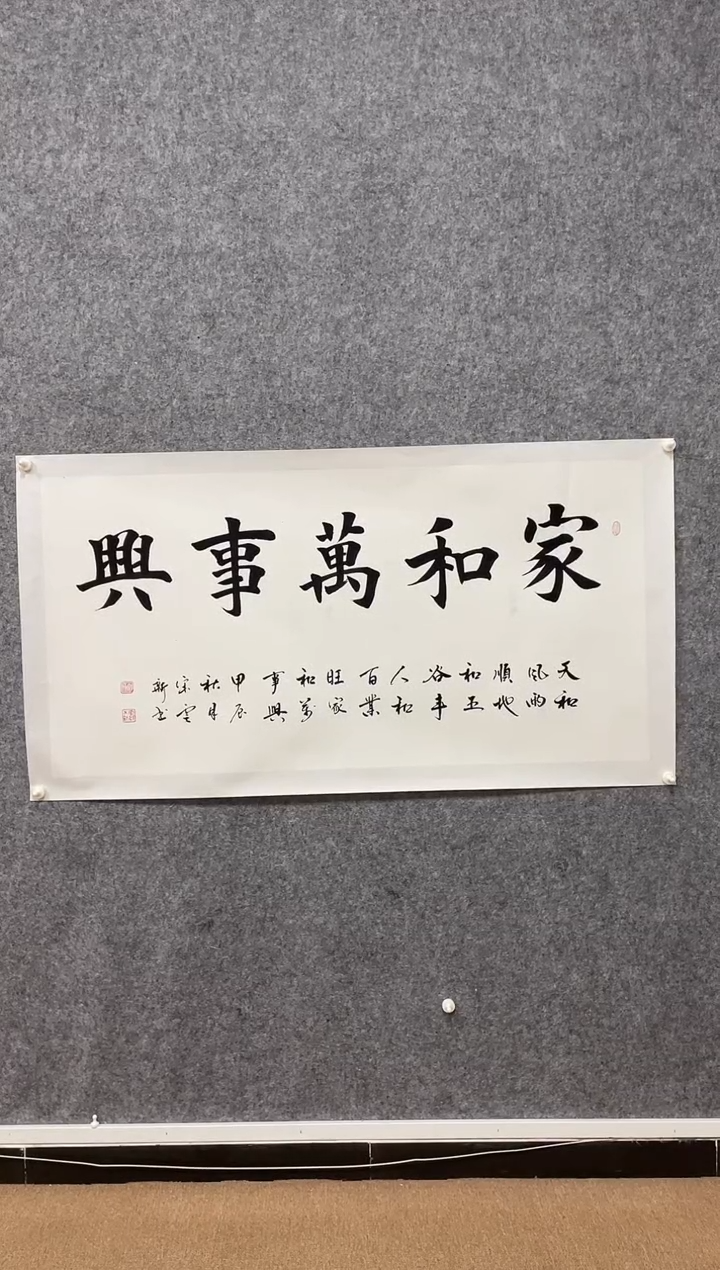 家和萬事興
天和
風雨
順地
和五
谷丰
人和
百業
旺家
和萬
事興
甲辰
秋月
宋雲
新書